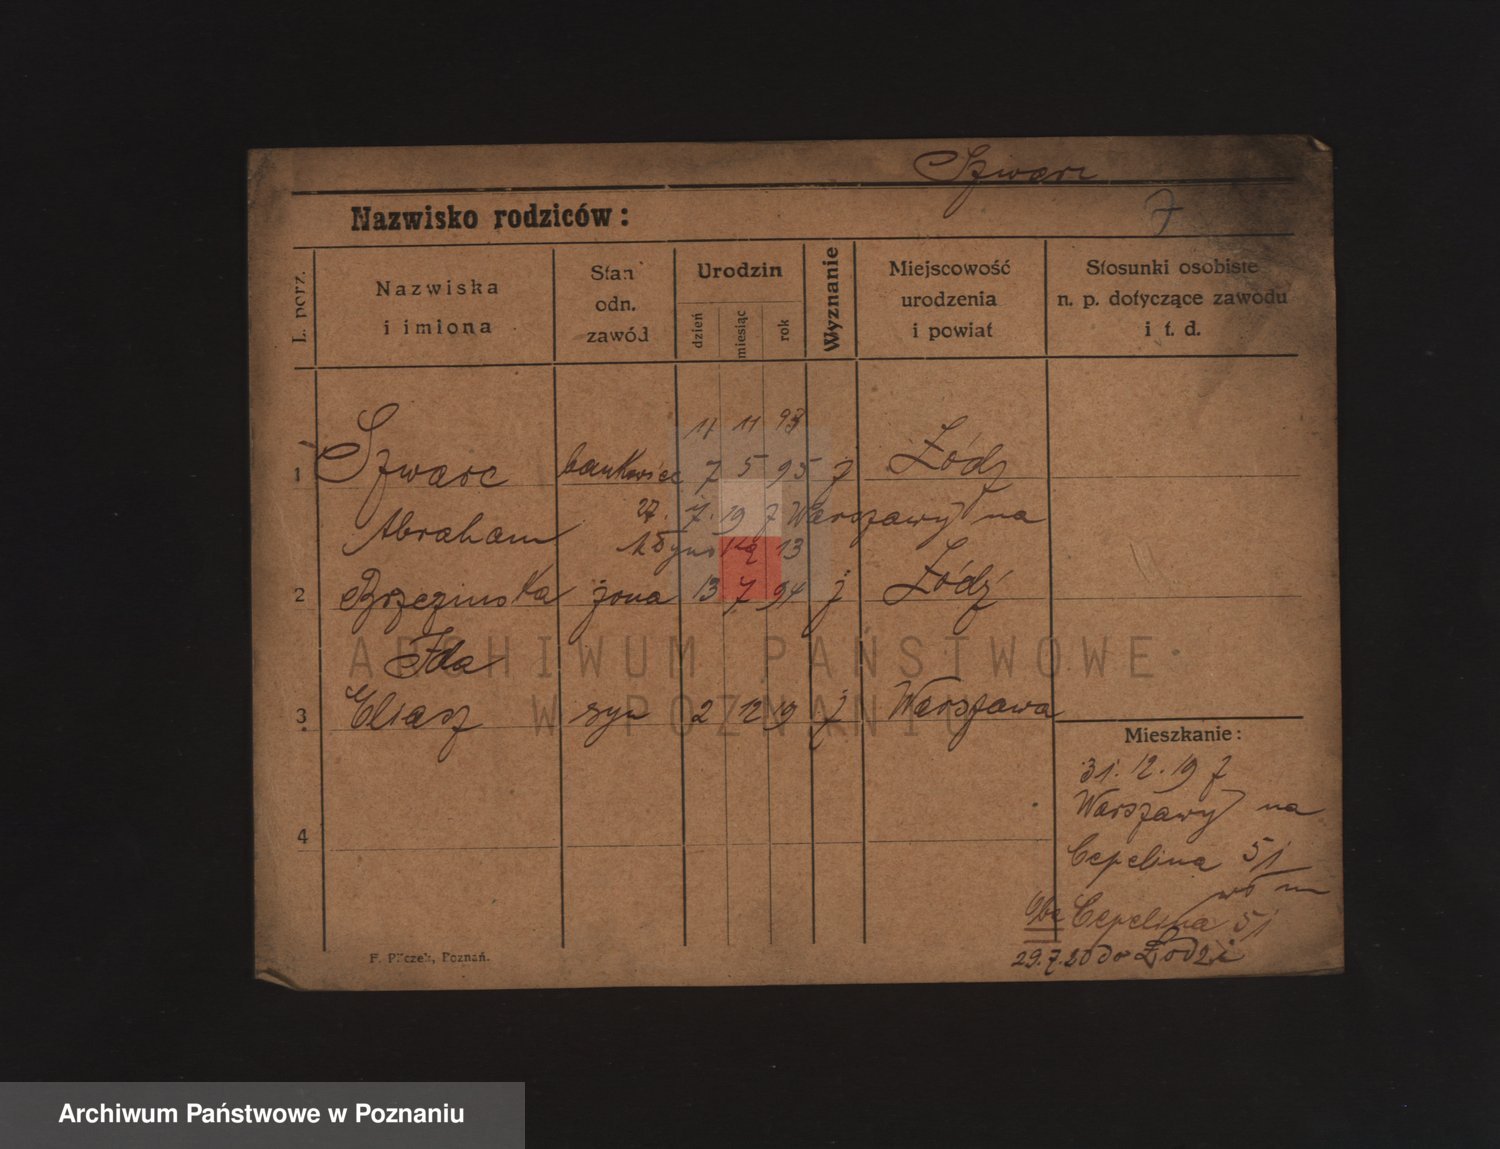 Szwarc
Nazwisko rodziców:
7
L. porz.
Nazwiska
i imiona
Stan
odn.
zawód
Urodzin
dzień
miesiąc
rok
Wyznanie
Miejscowość
urodzenia
i powiat
Stosunki osobiste
n. p. dotyczące zawodu
i t. d.
11 93
1 Szwarc bankowiec 7 5 95 j Łódz
Abraham 27. 7. 19 z Warszawy na
13
2 Brzezinska żona 13 7 94 j Łódź
Ida
3 Eliasz syn 2 12 19 j Warszawa
4
Mieszkanie:
31. 12. 19 z
Warszawy na
Cepelina 5
Cepelina 5
29.7.20 do Łodzi
F. Pilczek, Poznań.
ARCHIWUM PAŃSTWOWE
W POZNANIU
Archiwum Państwowe w Poznaniu